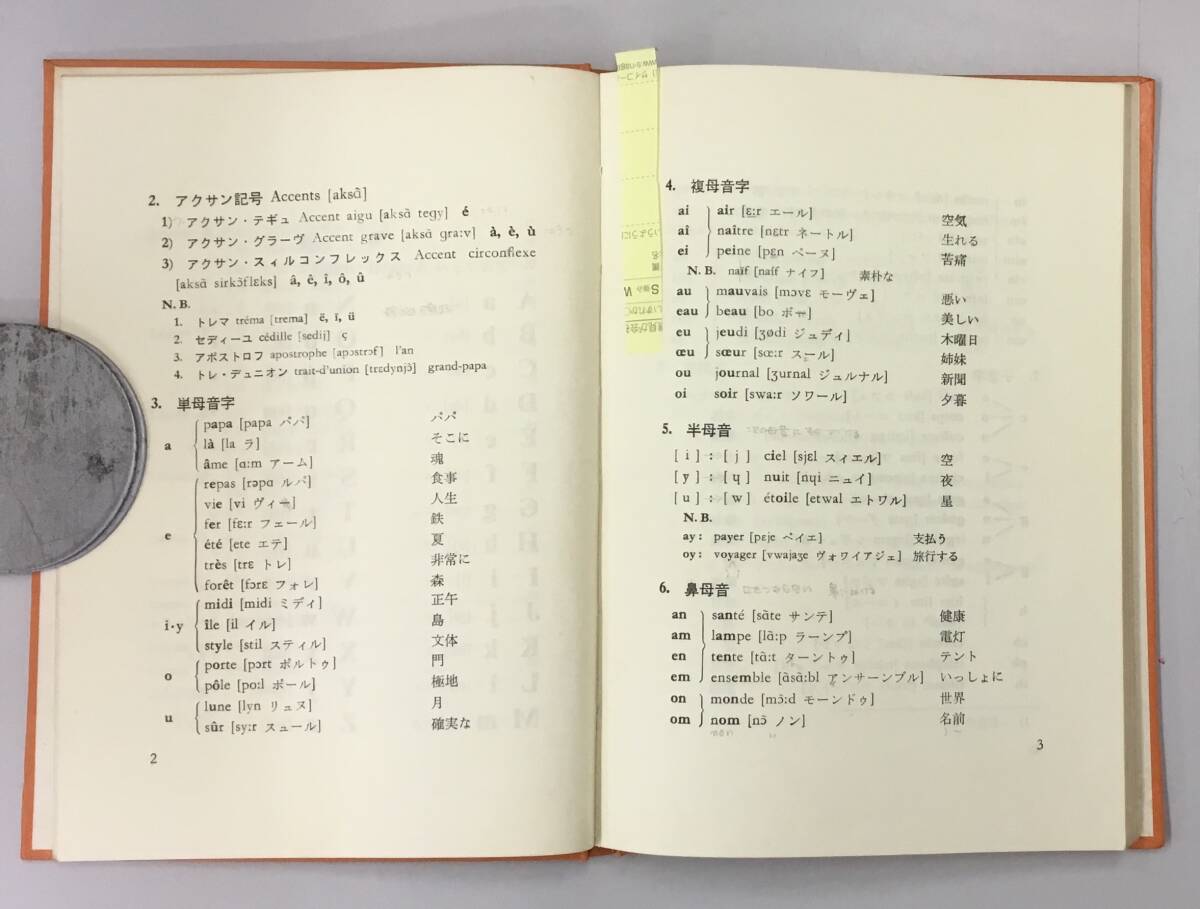 2. アクサン記号 Accents [aksɑ̃]
1) アクサン・テギュ Accent aigu [aksɑ̃ tegy] é
2) アクサン・グラーヴ Accent grave [aksɑ̃ gra:v] à, è, ù
3) アクサン・スィルコンフレックス Accent circonflexe
[aksɑ̃ sirkɔ̃flɛks] â, ê, î, ô, û
N. B.
1. トレマ tréma [trema] ë, ï, ü
2. セディーユ cédille [sedij] ç
3. アポストロフ apostrophe [apɔstrɔf] l'an
4. トレ・デュニオン trait-d'union [trɛdynjɔ̃] grand-papa
3. 単母音字
a
papa [papa パパ] パパ
là [la ラ] そこに
âme [ɑ:m アーム] 魂
e
repas [rəpɑ ルパ] 食事
vie [vi ヴィー] 人生
fer [fɛ:r フェール] 鉄
été [ete エテ] 夏
très [trɛ トレ] 非常に
forêt [fɔrɛ フォレ] 森
i・y
midi [midi ミディ] 正午
île [il イル] 島
style [stil スティル] 文体
o
porte [pɔrt ポルトゥ] 門
pôle [po:l ポール] 極地
u
lune [lyn リュヌ] 月
sûr [sy:r スュール] 確実な
2
4. 複母音字
ai air [ɛ:r エール] 空気
aî naître [nɛtr ネートル] 生れる
ei peine [pɛn ペーヌ] 苦痛
N. B. naïf [naif ナイフ] 素朴な
au mauvais [mɔvɛ モーヴェ] 悪い
eau beau [bo ボー] 美しい
eu jeudi [ʒødi ジュディ] 木曜日
œu sœur [sœ:r スール] 姉妹
ou journal [ʒurnal ジュルナル] 新聞
oi soir [swa:r ソワール] 夕暮
5. 半母音
[ i ] : [ j ] ciel [sjɛl スィエル] 空
[ y ] : [ ɥ ] nuit [nɥi ニュイ] 夜
[ u ] : [ w ] étoile [etwal エトワル] 星
N. B.
ay: payer [pɛje ペイエ] 支払う
oy: voyager [vwajaʒe ヴォワイアジェ] 旅行する
6. 鼻母音
an santé [sɑ̃te サンテ] 健康
am lampe [lɑ̃:p ラーンプ] 電灯
en tente [tɑ̃:t ターントゥ] テント
em ensemble [ɑ̃sɑ̃:bl アンサーンブル] いっしょに
on monde [mɔ̃:d モーンドゥ] 世界
om nom [nɔ̃ ノン] 名前
3